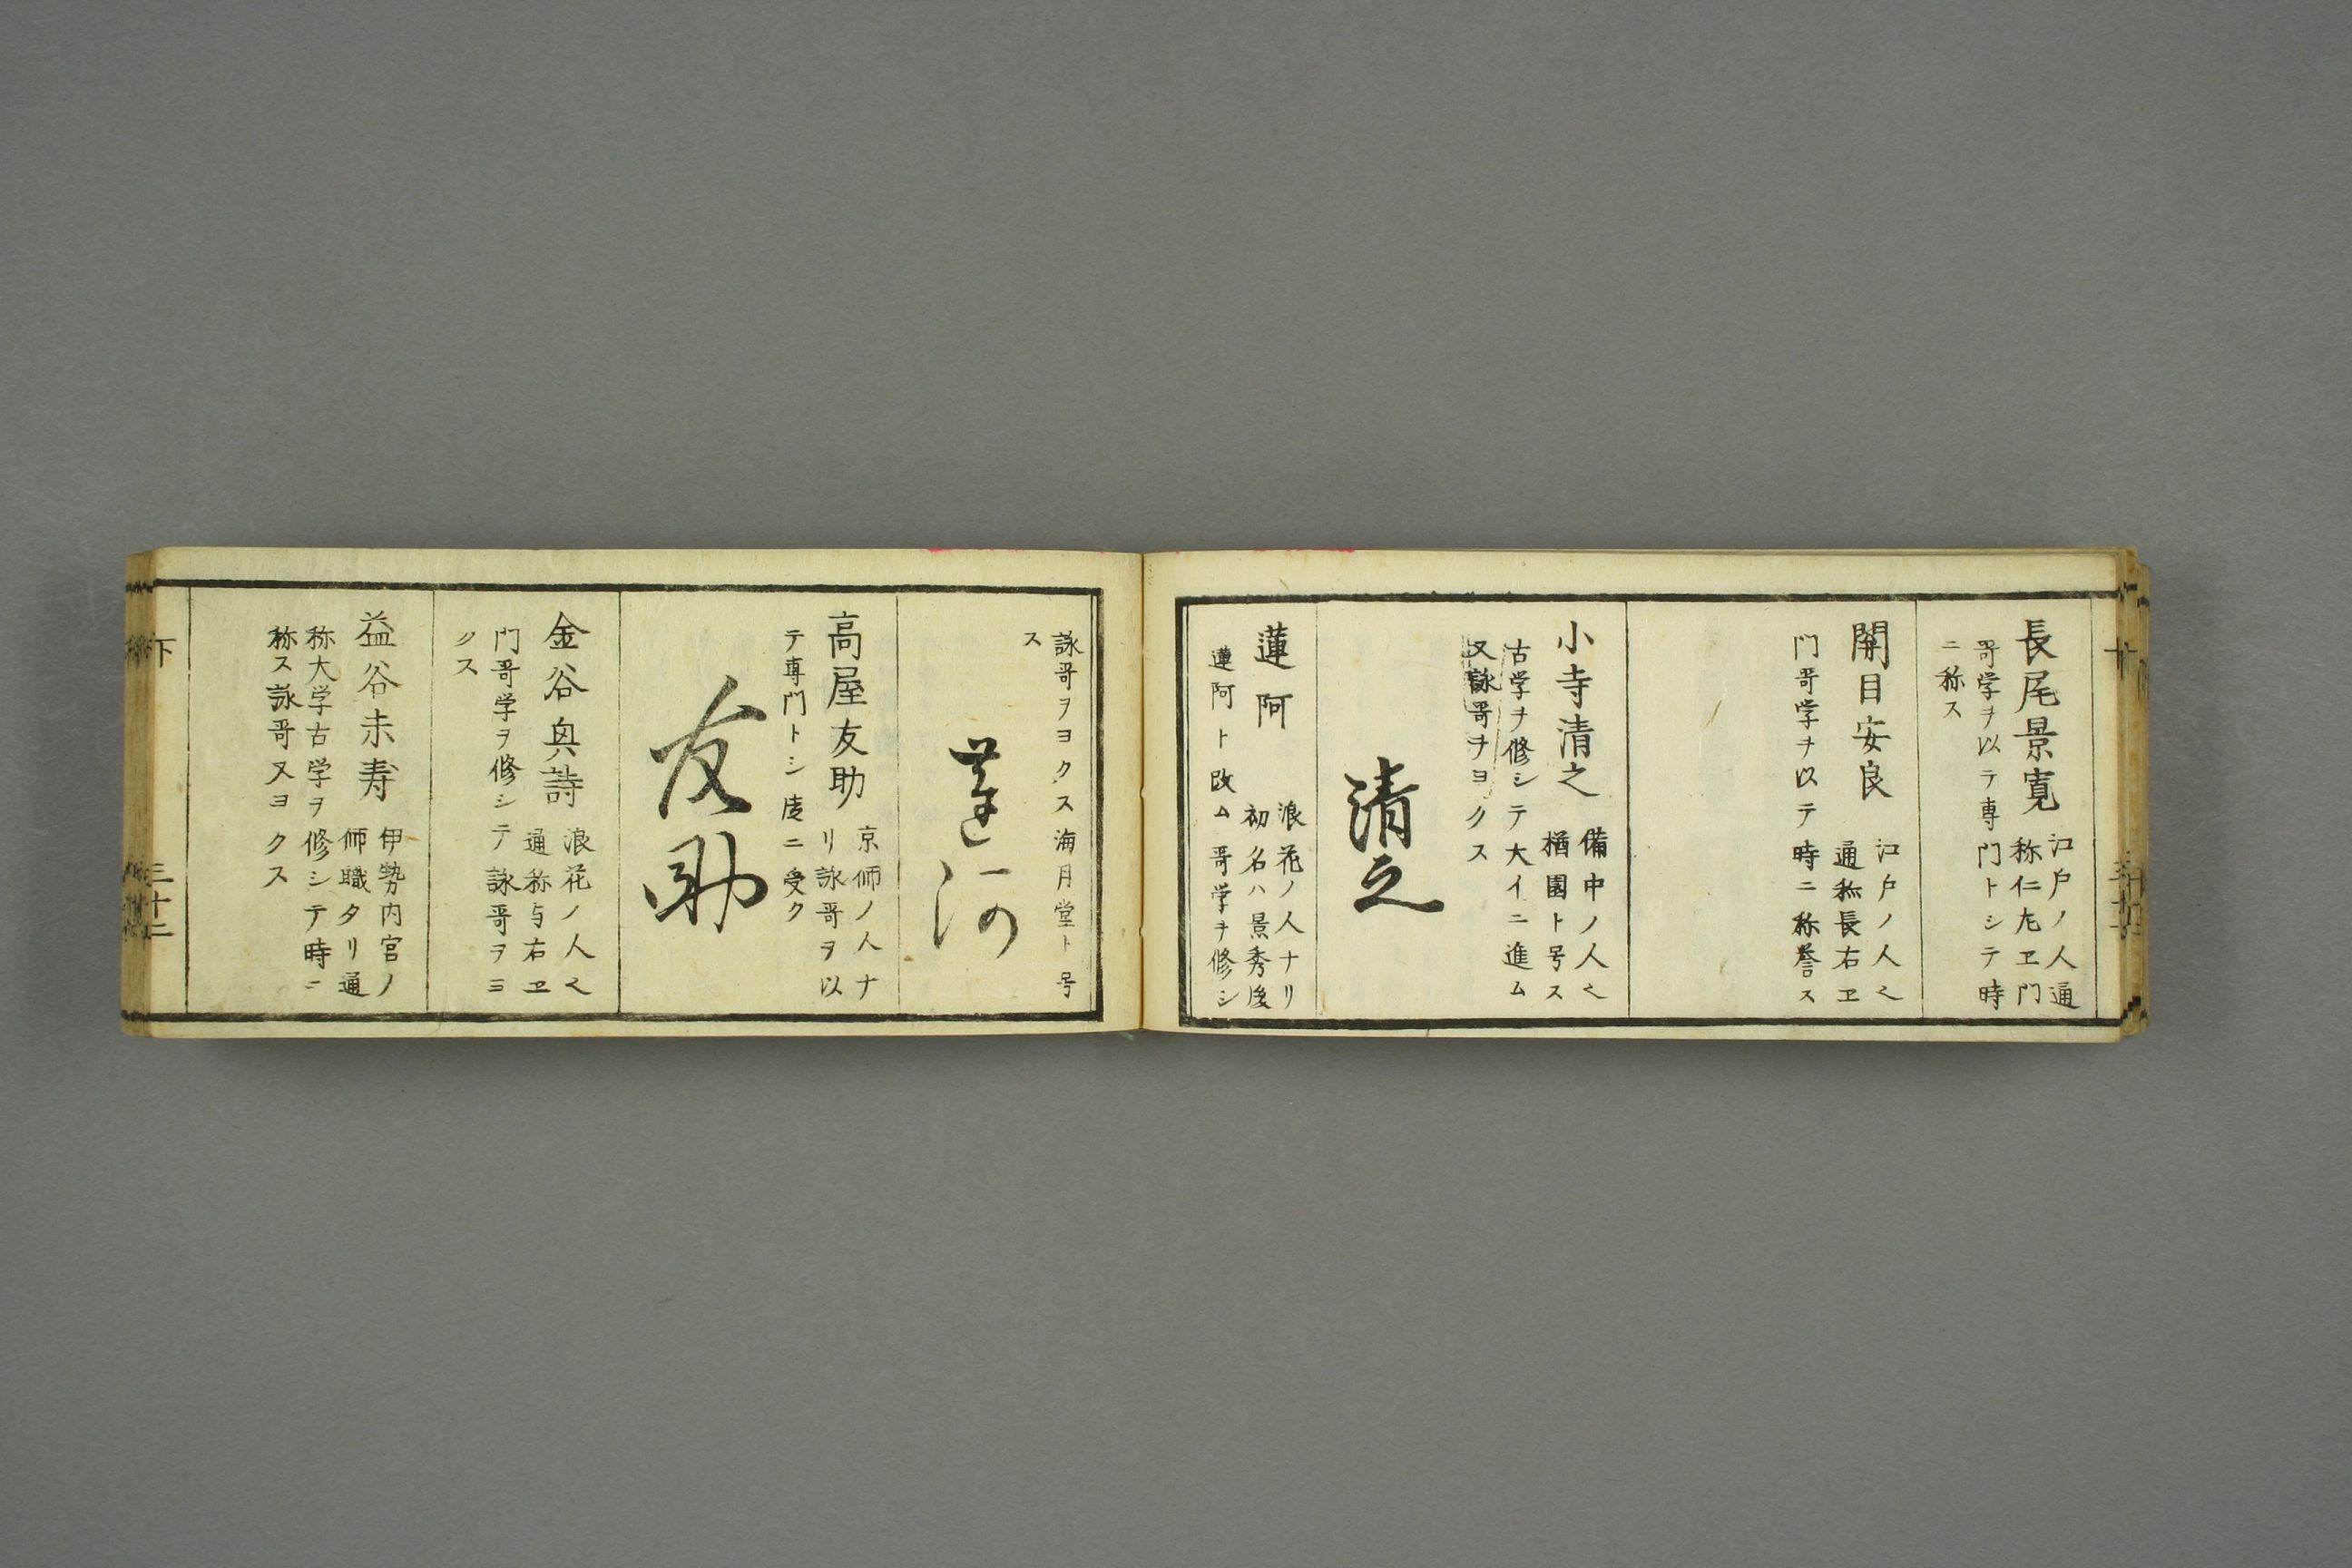 長尾景寛
江戸ノ人通
称仁左ヱ門
哥学ヲ以テ専門トシテ時
ニ称ス
開目安良
江戸ノ人也
通称長右ヱ
門哥学ヲ以テ時ニ称誉ス
小寺清之
備中ノ人也
楢園ト号ス
古学ヲ修シテ大イニ進ム
又詠哥ヲヨクス
清之
蓮阿
浪花ノ人ナリ
初名ハ景秀後
蓮阿ト改ム哥学ヲ修シ
詠哥ヲヨクス海月堂ト号
ス
蓮阿
高屋友助
京師ノ人ナ
リ詠哥ヲ以
テ専門トシ庋ニ受ク
友助
金谷與詩
浪花ノ人也
通称与右ヱ
門哥学ヲ修シテ詠哥ヲヨ
クス
益谷末寿
伊勢内宮ノ
師職タリ通
称大学古学ヲ修シテ時ニ
称ス詠哥又ヨクス
下
三十二